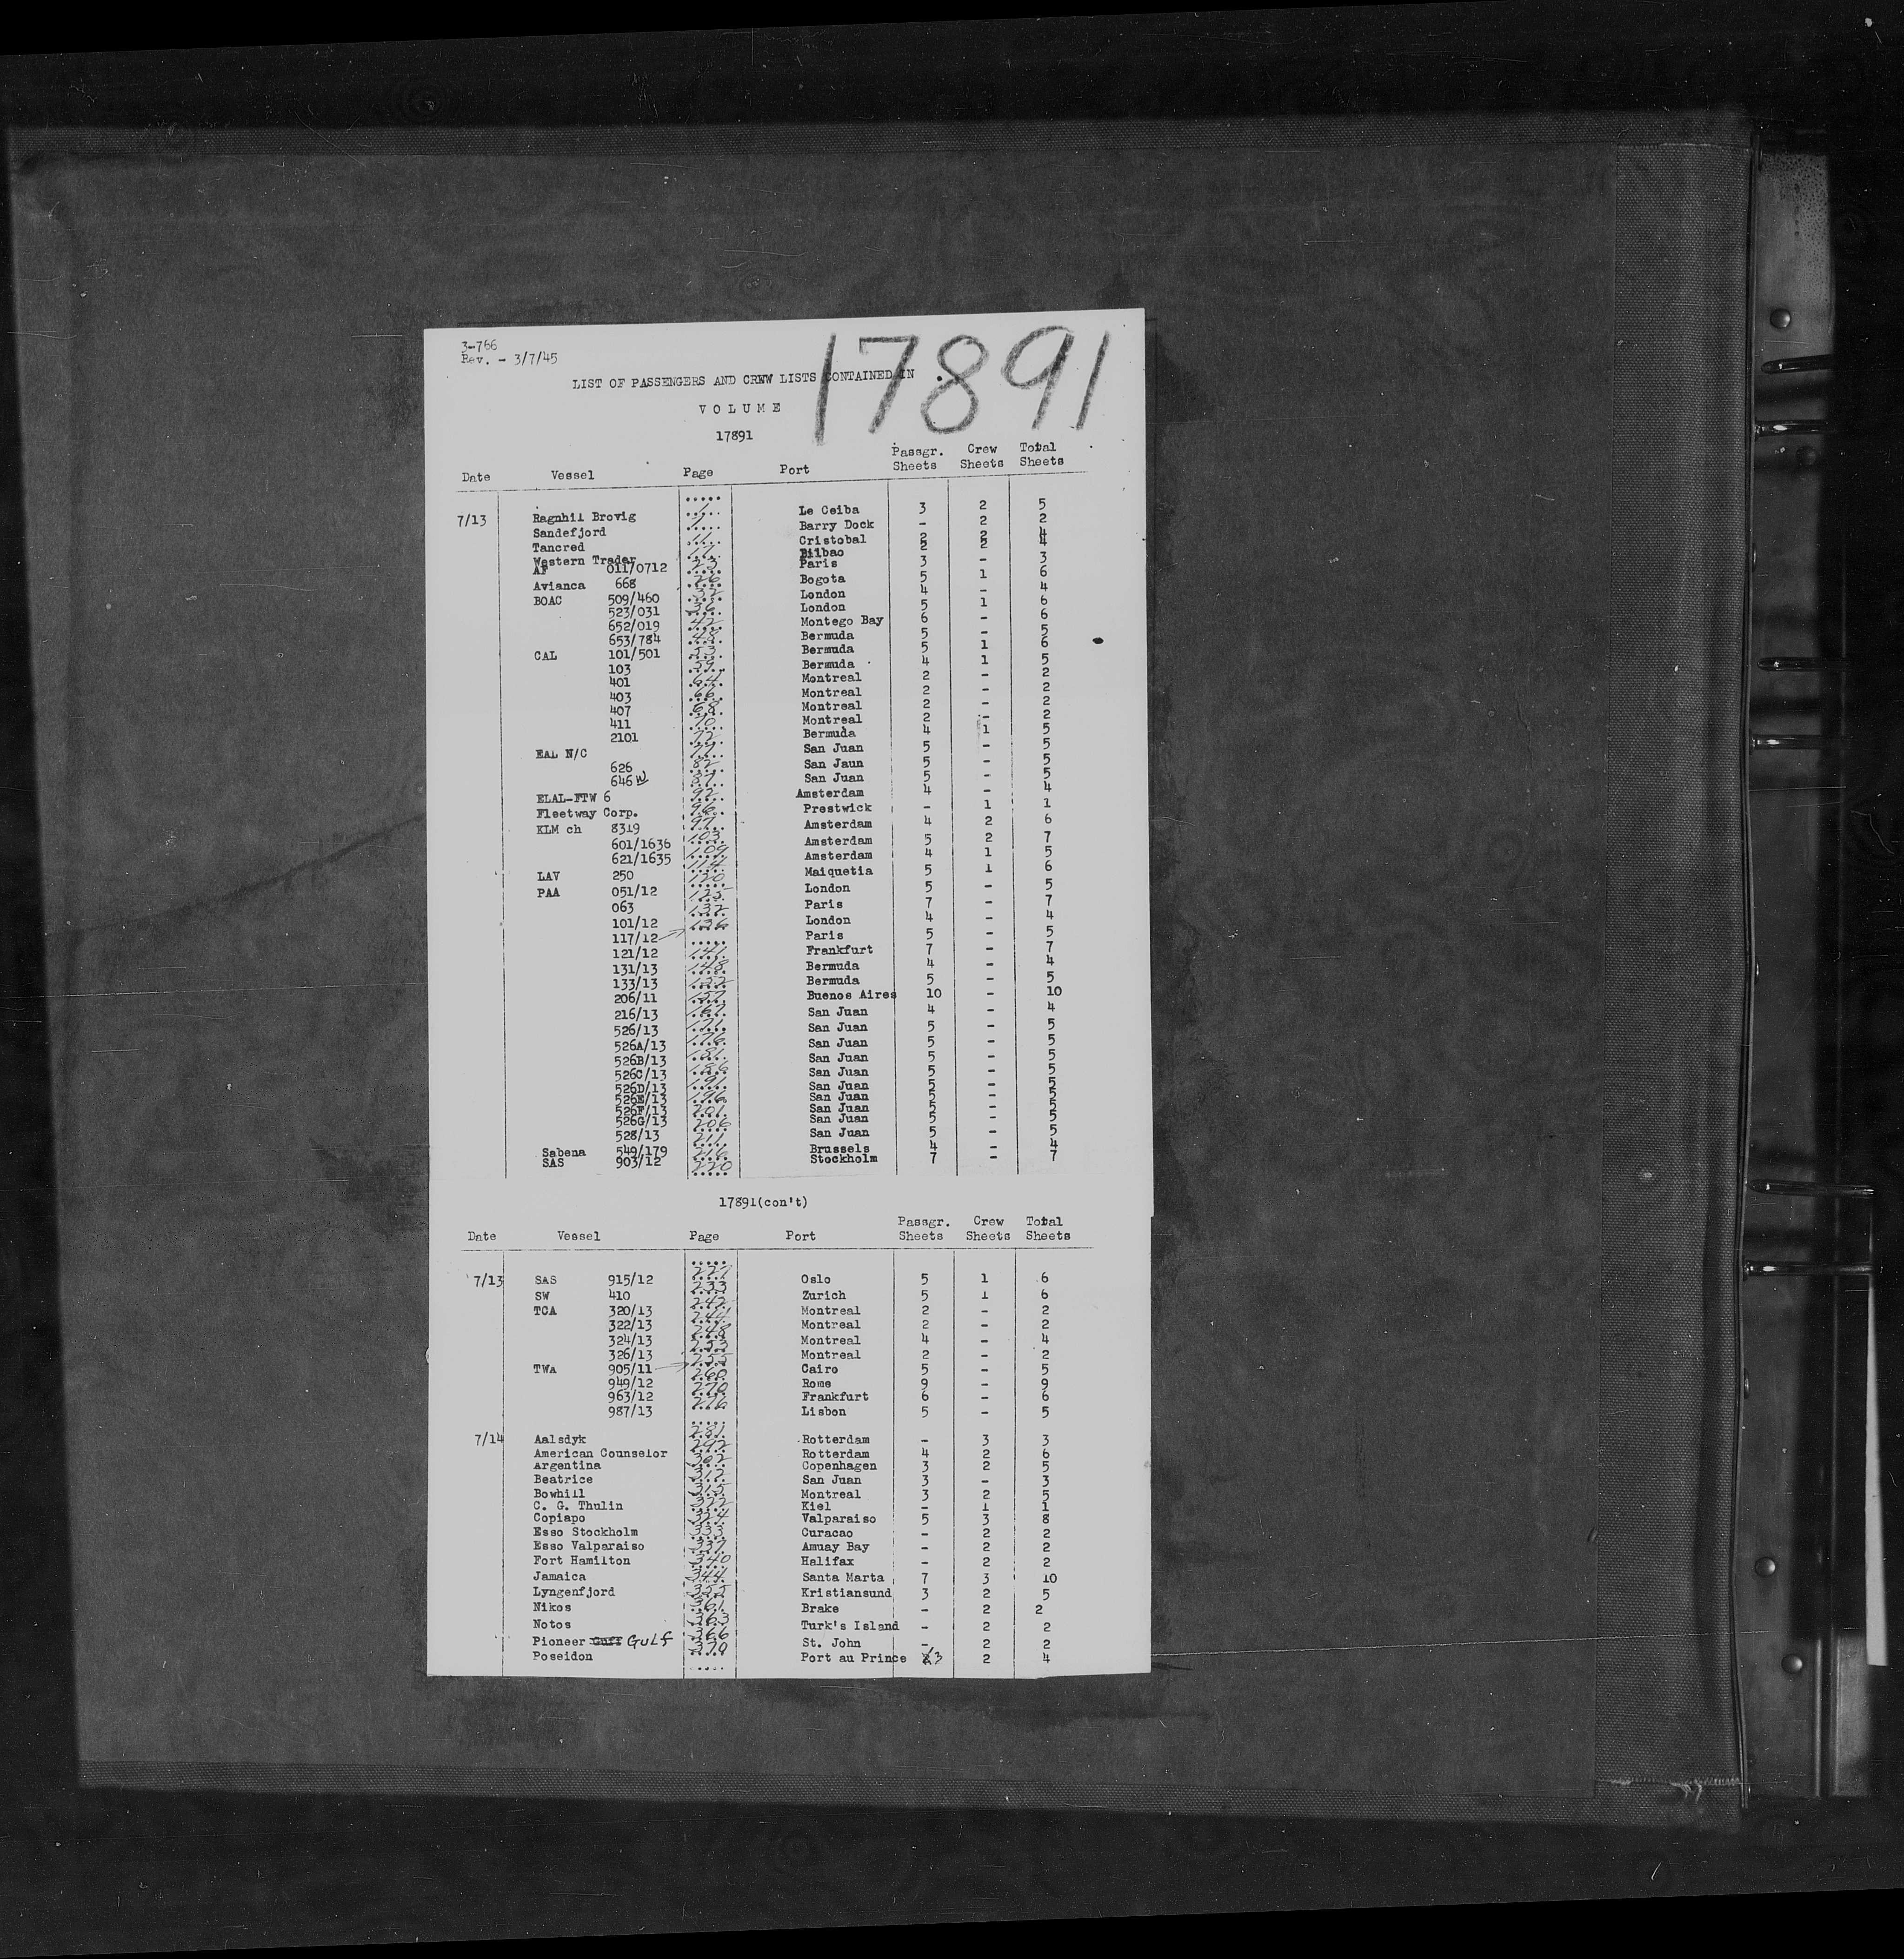 3-766
Rev. - 3/7/45
17891
LIST OF PASSENGERS AND CREW LISTS CONTAINED IN
VOLUME
17891
Date Vessel Page Port Passgr. Sheets Crew Sheets Total Sheets
7/13 Ragnhil Brovig 1 Le Ceiba 3 2 5
Sandefjord Barry Dock - 2 2
Tancred 11 Cristobal 2 2 4
Western Trader 17 Bilbao 2 2 4
AF 011/0712 23 Paris 3 - 3
Avianca 668 26 Bogota 5 1 6
BOAC 509/460 32 London 4 - 4
523/031 36 London 5 1 6
652/019 42 Montego Bay 6 - 6
653/784 48 Bermuda 5 - 5
CAL 101/501 53 Bermuda 5 1 6
103 59 Bermuda 4 1 5
401 64 Montreal 2 - 2
403 66 Montreal 2 - 2
407 68 Montreal 2 - 2
411 70 Montreal 2 - 2
2101 72 Bermuda 4 1 5
EAL N/C 77 San Juan 5 - 5
626 82 San Jaun 5 - 5
646 W 87 San Juan 5 - 5
ELAL-FTW 6 92 Amsterdam 4 - 4
Fleetway Corp. 96 Prestwick - 1 1
KLM ch 8319 97 Amsterdam 4 2 6
601/1636 103 Amsterdam 5 2 7
621/1635 109 Amsterdam 4 1 5
LAV 250 114 Maiquetia 5 1 6
PAA 051/12 120 London 5 - 5
063 125 Paris 7 - 7
101/12 132 London 4 - 4
117/12 136 Paris 5 - 5
121/12 141 Frankfurt 7 - 7
131/13 148 Bermuda 4 - 4
133/13 152 Bermuda 5 - 5
206/11 157 Buenos Aires 10 - 10
216/13 167 San Juan 4 - 4
526/13 171 San Juan 5 - 5
526A/13 176 San Juan 5 - 5
526B/13 181 San Juan 5 - 5
526C/13 186 San Juan 5 - 5
526D/13 191 San Juan 5 - 5
526E/13 196 San Juan 5 - 5
526F/13 201 San Juan 5 - 5
526G/13 206 San Juan 5 - 5
528/13 211 San Juan 5 - 5
Sabena 549/179 216 Brussels 4 - 4
SAS 903/12 220 Stockholm 7 - 7
17891(con't)
Date Vessel Page Port Passgr. Sheets Crew Sheets Total Sheets
7/13 SAS 915/12 227 Oslo 5 1 6
SW 410 233 Zurich 5 1 6
TCA 320/13 242 Montreal 2 - 2
322/13 244 Montreal 2 - 2
324/13 248 Montreal 4 - 4
326/13 253 Montreal 2 - 2
TWA 905/11 255 Cairo 5 - 5
949/12 260 Rome 9 - 9
963/12 270 Frankfurt 6 - 6
987/13 276 Lisbon 5 - 5
7/14 Aalsdyk 281 Rotterdam - 3 3
American Counselor 292 Rotterdam 4 2 6
Argentina 302 Copenhagen 3 2 5
Beatrice 312 San Juan 3 - 3
Bowhill 315 Montreal 3 2 5
C. G. Thulin 322 Kiel - 1 1
Copiapo 324 Valparaiso 5 3 8
Esso Stockholm 333 Curacao - 2 2
Esso Valparaiso 337 Amuay Bay - 2 2
Fort Hamilton 340 Halifax - 2 2
Jamaica 344 Santa Marta 7 3 10
Lyngenfjord 355 Kristiansund 3 2 5
Nikos 361 Brake - 2 2
Notos 363 Turk's Island - 2 2
Pioneer Gulf 366 St. John - 2 2
Poseidon 370 Port au Prince 3 2 4